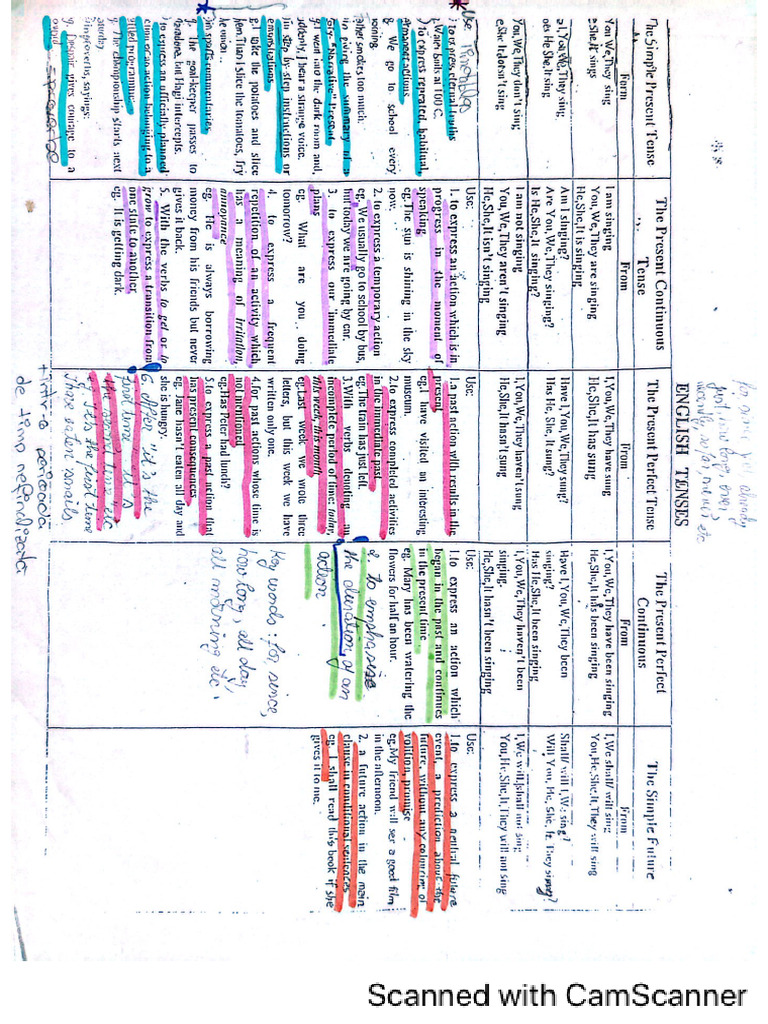 for since yet already
just, now long, ever,
recently, so far, never etc
ENGLISH TENSES
The Simple Present Tense
Form
You We, They sing
He,She,It sings
I,You We,They sing
Does He She,It sing
You,We,They don't sing
She It doesn't sing
Use
to express eternal truths
Water boils at 100 C.
to express repeated, habitual,
permanent actions
We go to school every
morning.
Father smokes too much.
in giving the summary of a
"Narrative" Present
I went into the dark room and,
suddenly, I hear a strange voice.
in step by step instructions or
demonstrations
I take the potatoes and slice
them. Then I slice the tomatoes, fry
the onion
in sports commentaries
The goalkeeper passes to
but Hagi intercepts.
to express an officially planned
action or an action belonging to a
programme
The championship starts next
in proverbs, sayings:
eg. Despair gives courage to a
The Present Continuous
Tense
From
I am singing
You, We, They are singing
He,She,It is singing
Am I singing?
Are You, We,They singing?
Is He,She,It singing?
I am not singing
You, We, They aren't singing
He,She,It isn't singing
Use:
1. to express an action which is in
progress in the moment of
speaking
eg.The sun is shining in the sky
now.
2. to express a temporary action
eg. We usually go to school by bus,
but today we are going by car.
3. to express our immediate
plans
eg. What are you doing
tomorrow?
4. to express a frequent
repetition of an activity which
has a meaning of irritation,
annoyance
eg. He is always borrowing
money from his friends but never
gives it back.
5. With the verbs to get or to
grow to express a transition from
one state to another
eg. It is getting dark.
The Present Perfect Tense
From
I,You,We,They have sung
He,She,It has sung
Have I,You,We,They sung?
Has He, She, It sung?
I,You,We,They haven't sung
He,She,It hasn't sung
Use:
1.a past action with results in the
present
eg.I have visited an interesting
museum.
2.to express completed activities
in the immediate past
eg.The train has just left.
3.With verbs denoting an
incomplete period of time: today,
this week, this month
eg.Last week we wrote three
letters, but this week we have
written only one.
4.for past actions whose time is
not mentioned
eg.Has Peter had lunch?
5.to express a past action that
has present consequences
eg. Jane hasn't eaten all day and
she is hungry.
6. After "it's the
first time", it's
the second time" etc
eg It's the first time
I have eaten snails
The Present Perfect
Continuous
From
I,You,We,They have been singing
He,She,It has been singing
Have I,You,We,They been
singing?
Has He,She,It been singing
I,You,We,They haven't been
singing.
He,She,It hasn't been singing
Use:
1.to express an action which
began in the past and continues
in the present time
eg. Mary has been watering the
flowers for half an hour.
2. to emphasise
the duration of an
action
Key words: for since,
how long, all day,
all morning etc.
The Simple Future
From
I,We shall/ will sing
You,He,She,It,They will sing
Shall/ will I,We sing?
Will You, He, She, It, They sing?
I,We will/shall not sing
You,He,She,It,They will not sing
Use:
1.to express a neutral future
event, a prediction about the
future, without any colouring of
volition, promise
eg.My friend will see a good film
in the afternoon.
2. a future action in the main
clause in conditional sentences
eg. I shall read this book if she
gives it to me.
de timp nefinalizată
Scanned with CamScanner